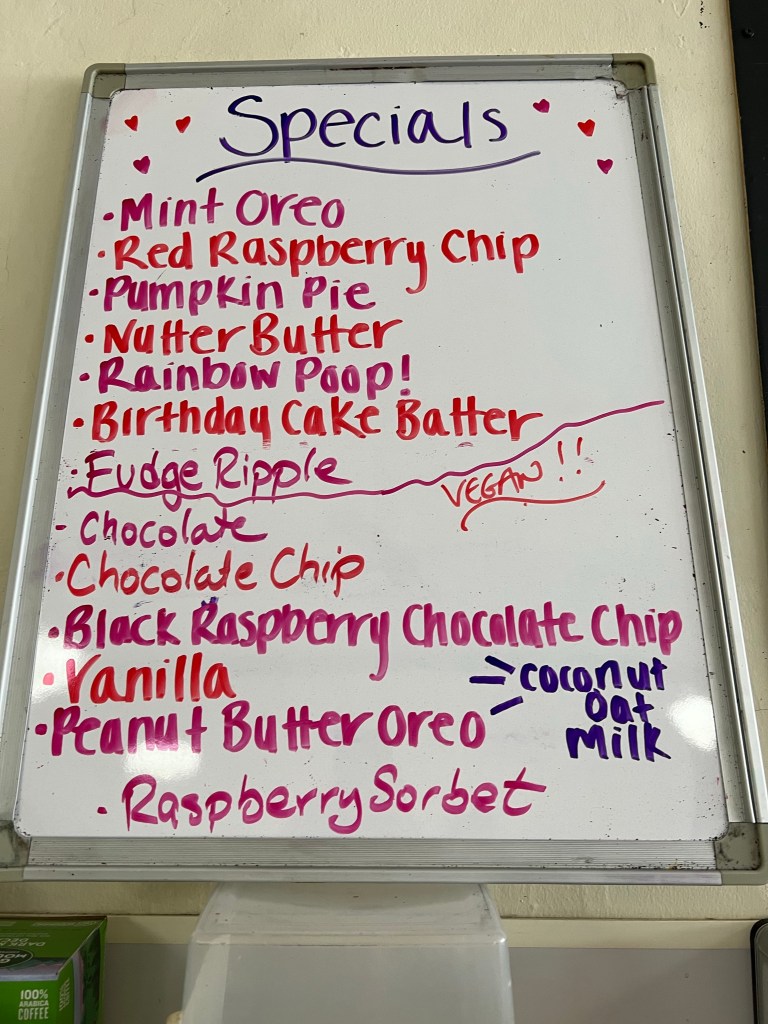 Specials
• Mint Oreo
• Red Raspberry Chip
• Pumpkin Pie
• Nutter Butter
• Rainbow Poop!
• Birthday Cake Batter
• Fudge Ripple
VEGAN!!
- Chocolate
• Chocolate Chip
• Black Raspberry Chocolate Chip
• Vanilla
coconut
oat
milk
• Peanut Butter Oreo
• Raspberry Sorbet
100%
ARABICA
COFFEE